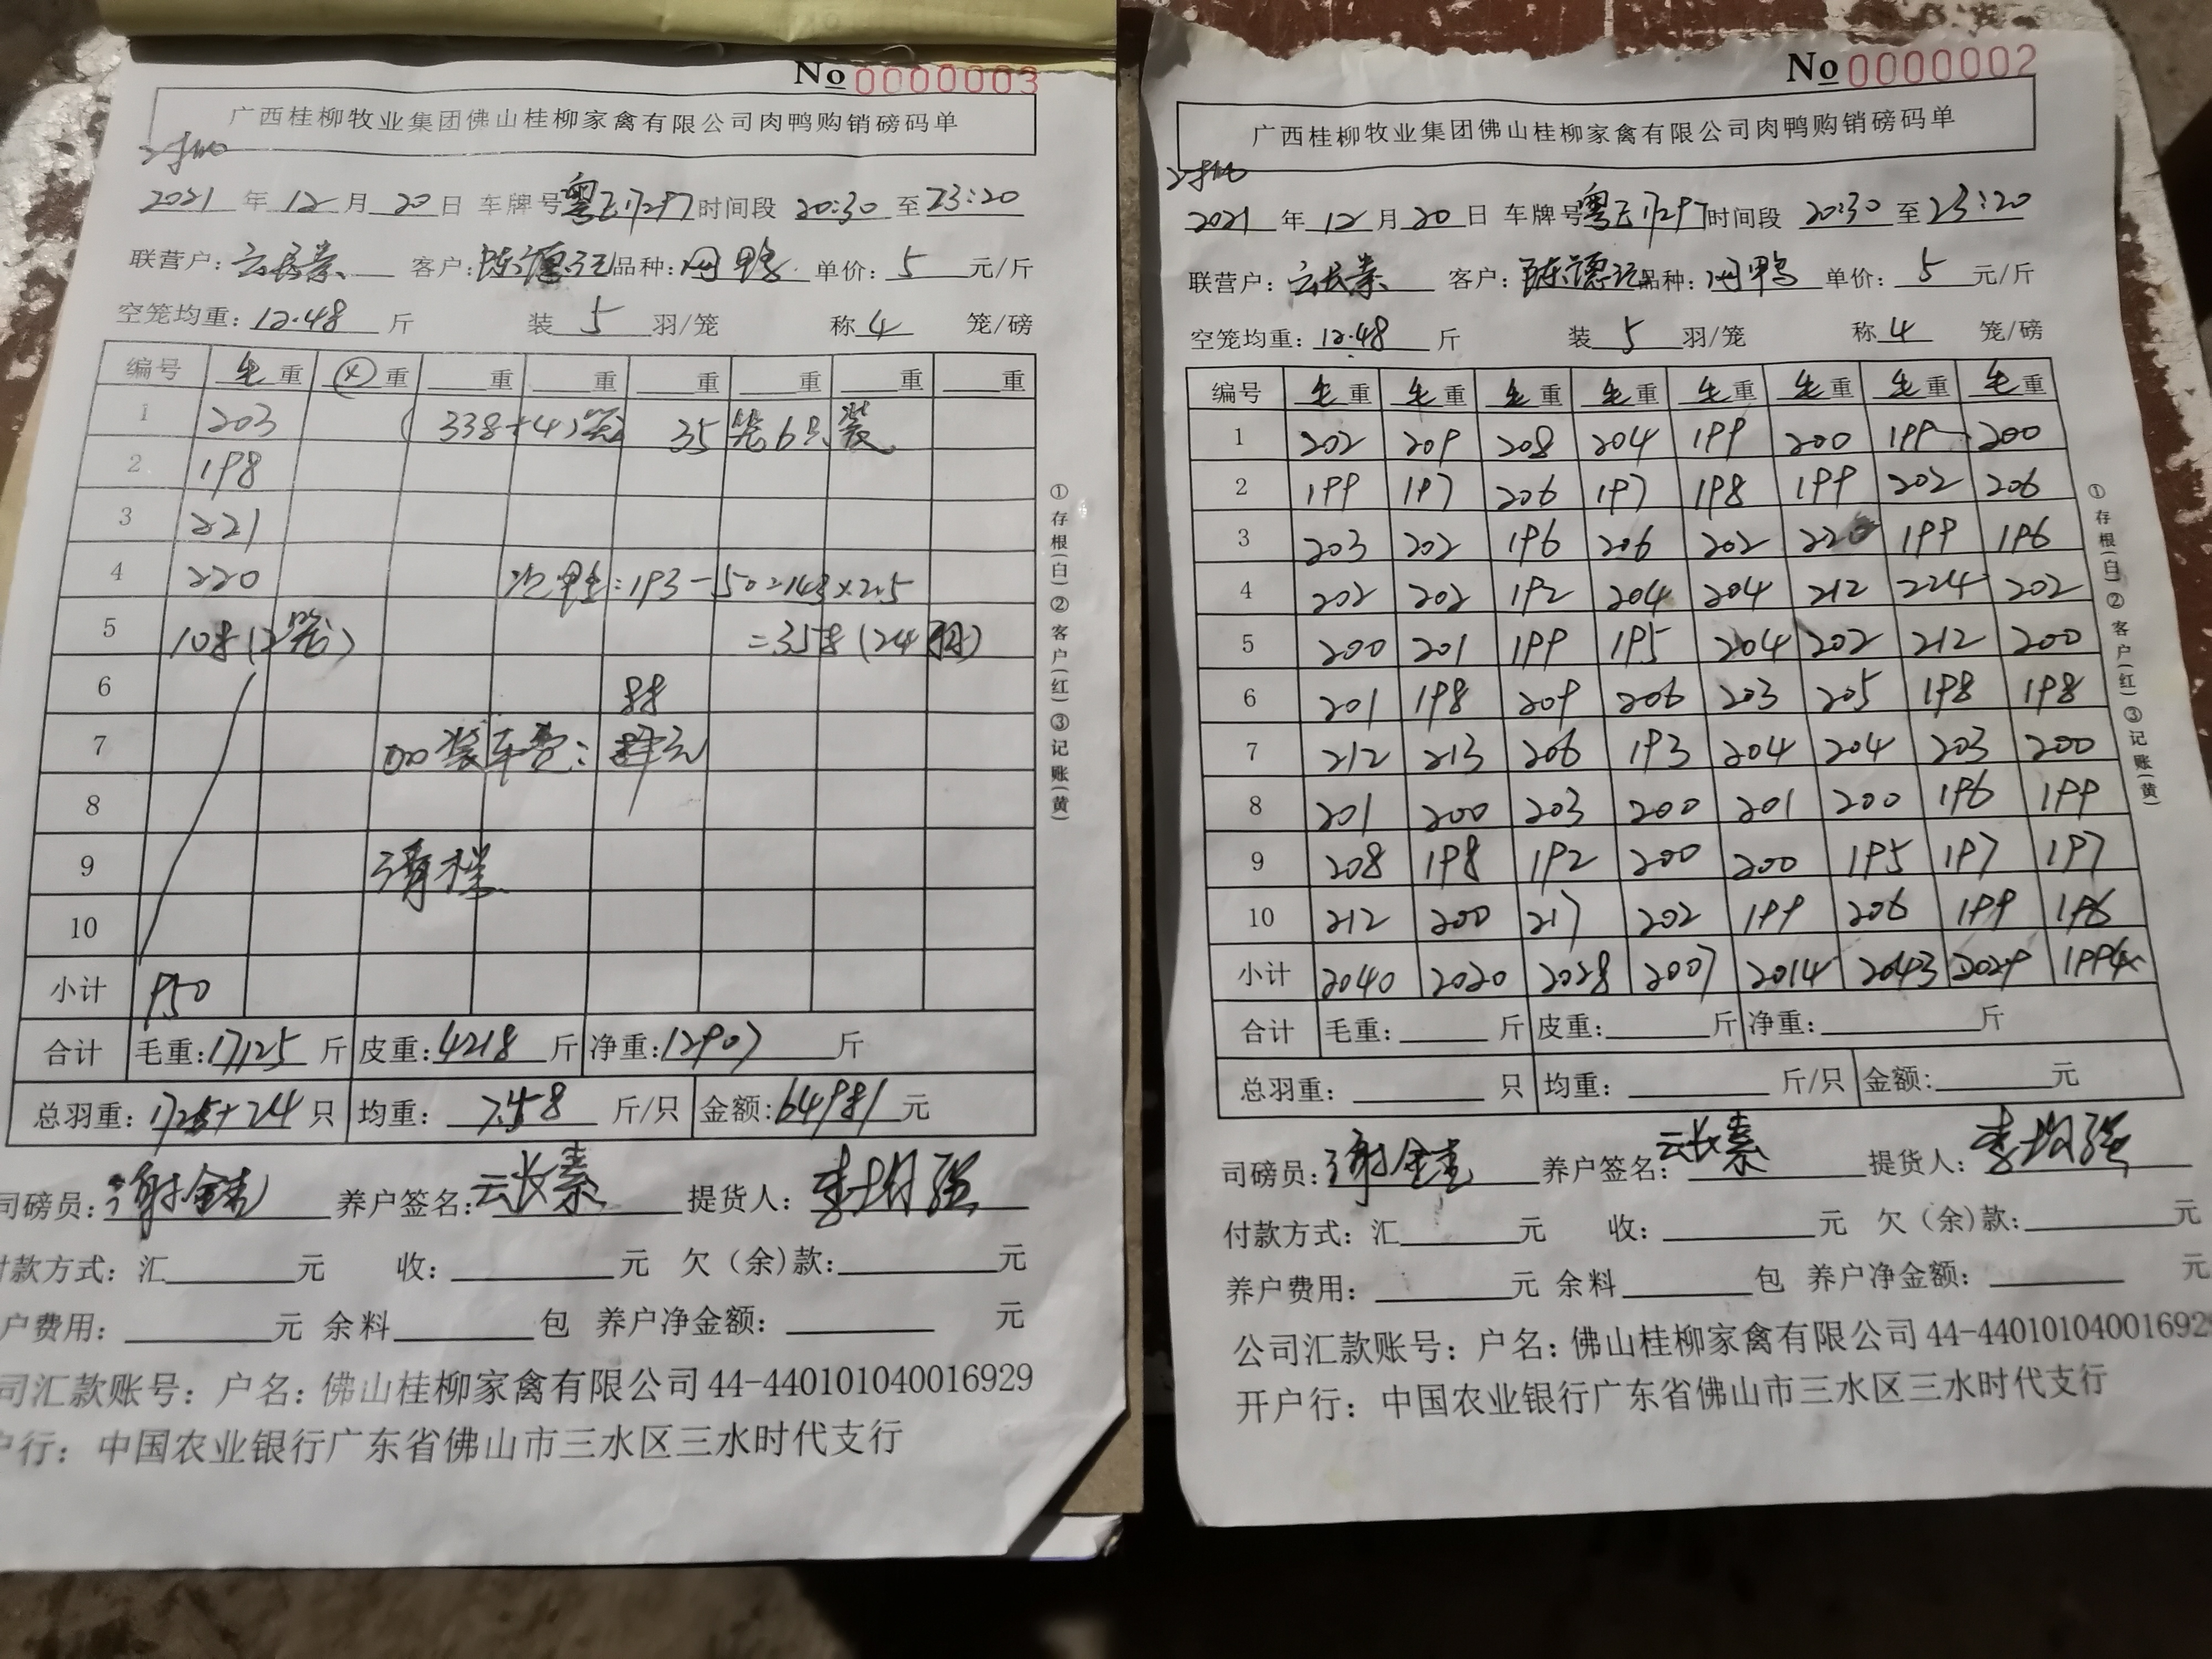 No 0000003
广西桂柳牧业集团佛山桂柳家禽有限公司肉鸭购销磅码单
2021 年 12 月 20 日 车牌号 时间段 20:30 至 23:20
联营户: 客户: 陈德 品种: 网鸭 单价: 5 元/斤
空笼均重: 12.48 斤 装 5 羽/笼 称 4 笼/磅
编号 毛重 重 重 重 重 重 重 重
1 203 (338+4)笼 35笼6只装
2 198
3 221
4 220 次鸭:193-50=143×2.5
5 108(2笼) =358(24羽)
6 88
7 加装车费: 元
8
9 清栏
10
小计 950
合计 毛重:17125 斤 皮重:4218 斤 净重:12907 斤
总羽重: 1725+24 只 均重: 7.58 斤/只 金额:64981 元
司磅员: 养户签名:云长素 提货人:
付款方式: 汇 元 收: 元 欠(余)款: 元
户费用: 元 余料 包 养户净金额: 元
司汇款账号: 户名: 佛山桂柳家禽有限公司 44-440101040016929
户行: 中国农业银行广东省佛山市三水区三水时代支行
①存根(白)②客户(红)③记账(黄)
No 0000002
广西桂柳牧业集团佛山桂柳家禽有限公司肉鸭购销磅码单
2021 年 12 月 20 日 车牌号 时间段 20:30 至 23:20
联营户: 客户: 陈德 品种: 网鸭 单价: 5 元/斤
空笼均重: 12.48 斤 装 5 羽/笼 称 4 笼/磅
编号 毛重 毛重 毛重 毛重 毛重 毛重 毛重 毛重
1 202 209 208 204 199 200 199 200
2 199 197 206 197 198 199 202 206
3 203 202 196 206 202 220 199 196
4 202 202 192 204 204 212 224 202
5 200 201 199 195 204 202 212 200
6 201 198 209 206 203 205 198 198
7 212 213 206 193 204 204 203 200
8 201 200 203 200 201 200 196 199
9 208 198 192 200 200 195 197 197
10 212 200 217 202 199 206 199 196
小计 2040 2020 2028 2007 2014 2043 2029 1994
合计 毛重: 斤 皮重: 斤 净重: 斤
总羽重: 只 均重: 斤/只 金额: 元
司磅员: 养户签名:云长素 提货人:
付款方式: 汇 元 收: 元 欠(余)款: 元
养户费用: 元 余料 包 养户净金额: 元
公司汇款账号: 户名: 佛山桂柳家禽有限公司 44-44010104001692
开户行: 中国农业银行广东省佛山市三水区三水时代支行
①存根(白)②客户(红)③记账(黄)